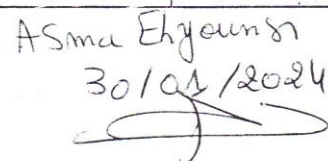 Asma Elyounsi
30/01/2024